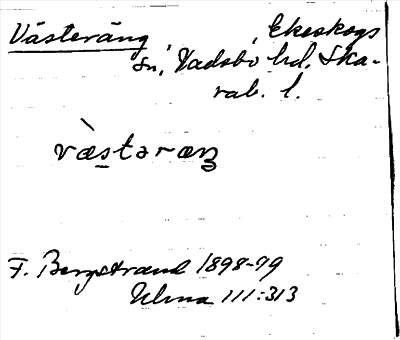 Västeräng, Ekeskogs
sn, Vadsbo hd, Ska-
rab. l.
và̀stəraŋ
F. Bergstrand 1898-99
Ulma 111:313